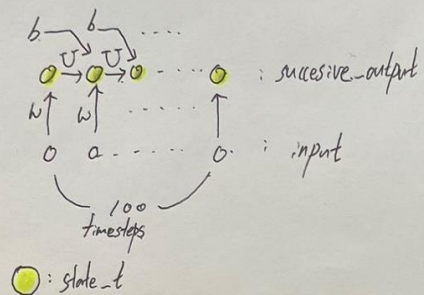 b b ....
U U
o o o .... o : succesive_output
W W ....
o o .... o : input
100
timesteps
: state_t